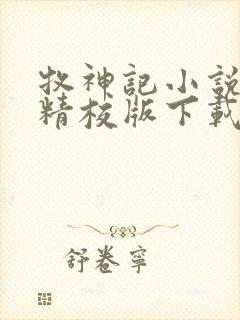 牧神記小説
精校版下載
舒卷寧